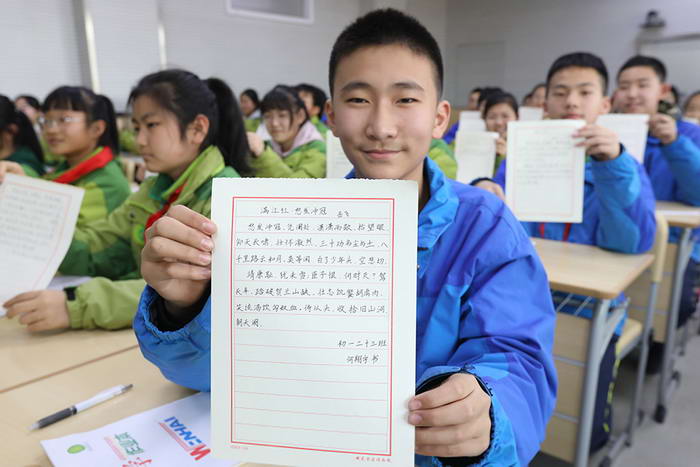 满江红·怒发冲冠 岳飞
怒发冲冠,凭阑处,潇潇雨歇,抬望眼
仰天长啸,壮怀激烈。三十功名尘与土,八
千里路云和月。莫等闲 白了少年头,空悲切
靖康耻,犹未雪;臣子恨,何时灭?驾
长车,踏破贺兰山缺。壮志饥餐胡虏肉,
笑谈渴饮匈奴血。待从头,收拾旧山河
朝天阙。
初一二十二班
何翔宇书
WENHAI